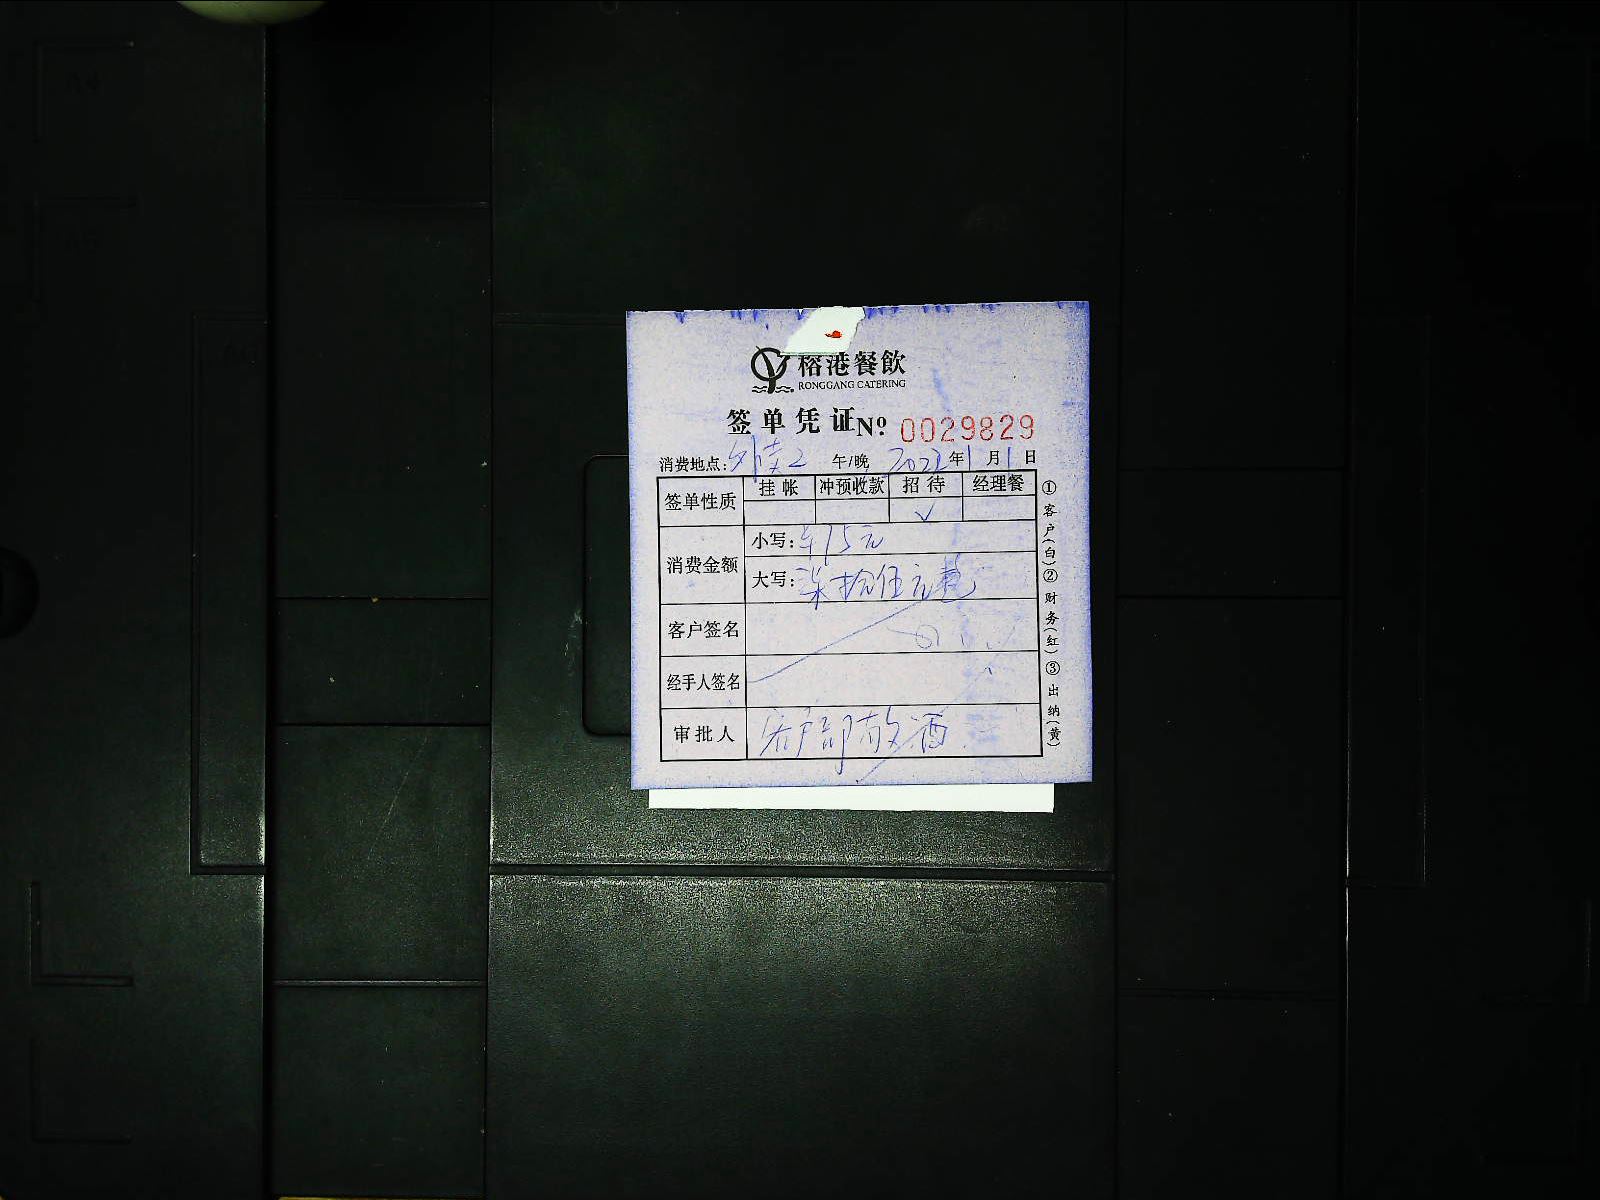 榕港餐飲
RONGGANG CATERING
签单凭证 Nº 0029829
消费地点: 午/晚 2022年1月1日
签单性质 挂帐 冲预收款 招待 经理餐
✓
消费金额 小写: ¥75元
大写: 柒拾伍元整
客户签名
经手人签名
审批人 客户部敬酒
①客户(白)②财务(红)③出纳(黄)